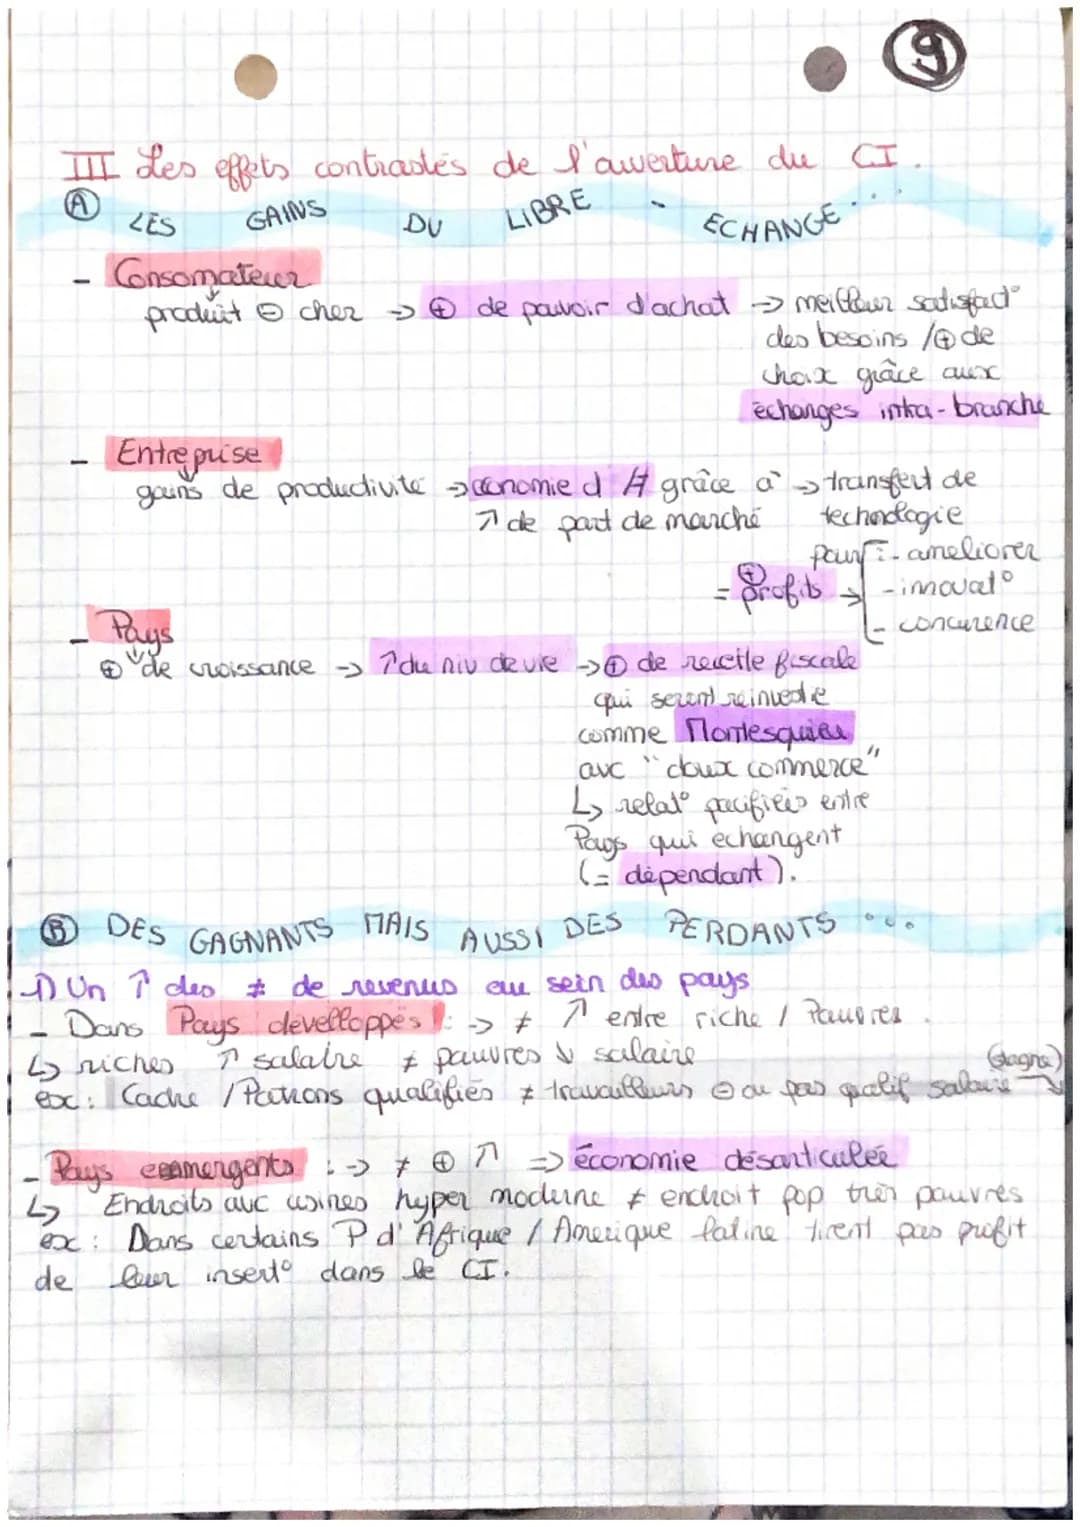 9
III Les effets contrastés de l'ouverture du CI.
A LES GAINS DU LIBRE - ECHANGE...
- Consomateur
produit ⊖ cher → ⊕ de pouvoir d'achat → meilleur satisfact°
des besoins / ⊕ de
choix grâce aux
échanges intra-branche
- Entreprise
gains de productivité → économie d' grâce à → transfert de
↗ de part de marché technologie
pour : - ameliorer
= ⊕ profits → - innovat°
- concurence
- Pays
⊕ de croissance → ↑ du niv de vie → ⊕ de recette fiscale
qui seront reinvestie
comme Montesquieu
avc "doux commerce"
↳ relat° pacifiées entre
Pays qui echangent
(= dépendant).
B DES GAGNANTS MAIS AUSSI DES PERDANTS ...
1) Un ↑ des ≠ de revenus au sein des pays
- Dans Pays développés : → ≠ ↗ entre riche / Pauvres.
↳ riches ↗ salaire ≠ pauvres ↓ salaire
(stagne)
ex : Cadre / Patrons qualifiés ≠ travailleurs ⊖ ou pas qualif salaire ↘
- Pays emmergents : → ≠ ⊕ ↗ ⇒ économie désarticulée
↳ Endroits avc usines hyper moderne ≠ endroit pop très pauvres
ex : Dans certains P d'Afrique / Amerique latine tirent pas profit
de leur insert° dans le CI.